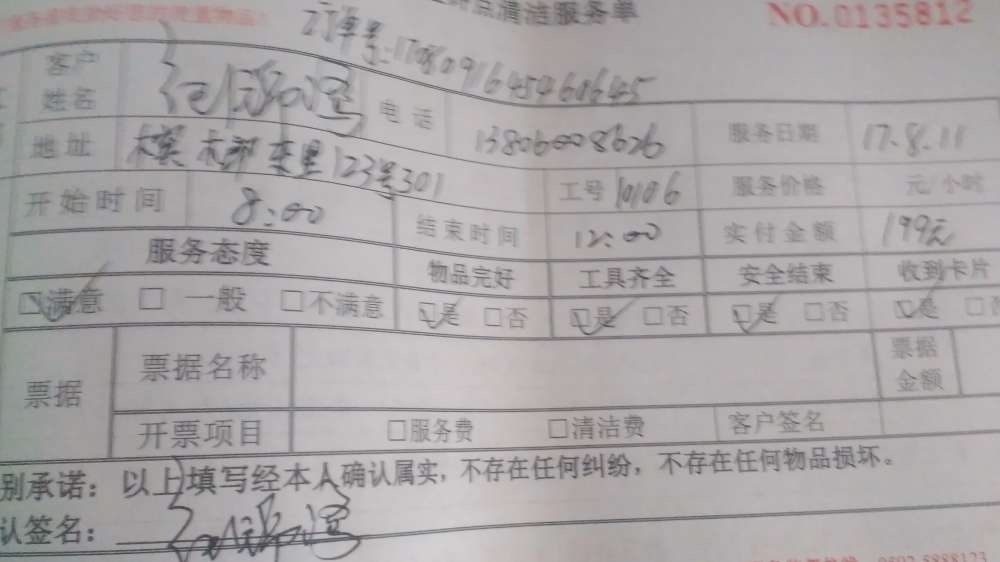 清洁服务单
NO.0135812
订单号:1708091645460645
客户姓名
电话 13806008626 服务日期 17.8.11
地址 123号301 工号 10106 服务价格 元/小时
开始时间 8:00 结束时间 12:00 实付金额 199元
服务态度 物品完好 工具齐全 安全结束 收到卡片
☑满意 □ 一般 □不满意 ☑是 □否 ☑是 □否 ☑是 □否 ☑是 □否
票据 票据名称 票据金额
开票项目 □服务费 □清洁费 客户签名
别承诺：以上填写经本人确认属实，不存在任何纠纷，不存在任何物品损坏。
认签名：